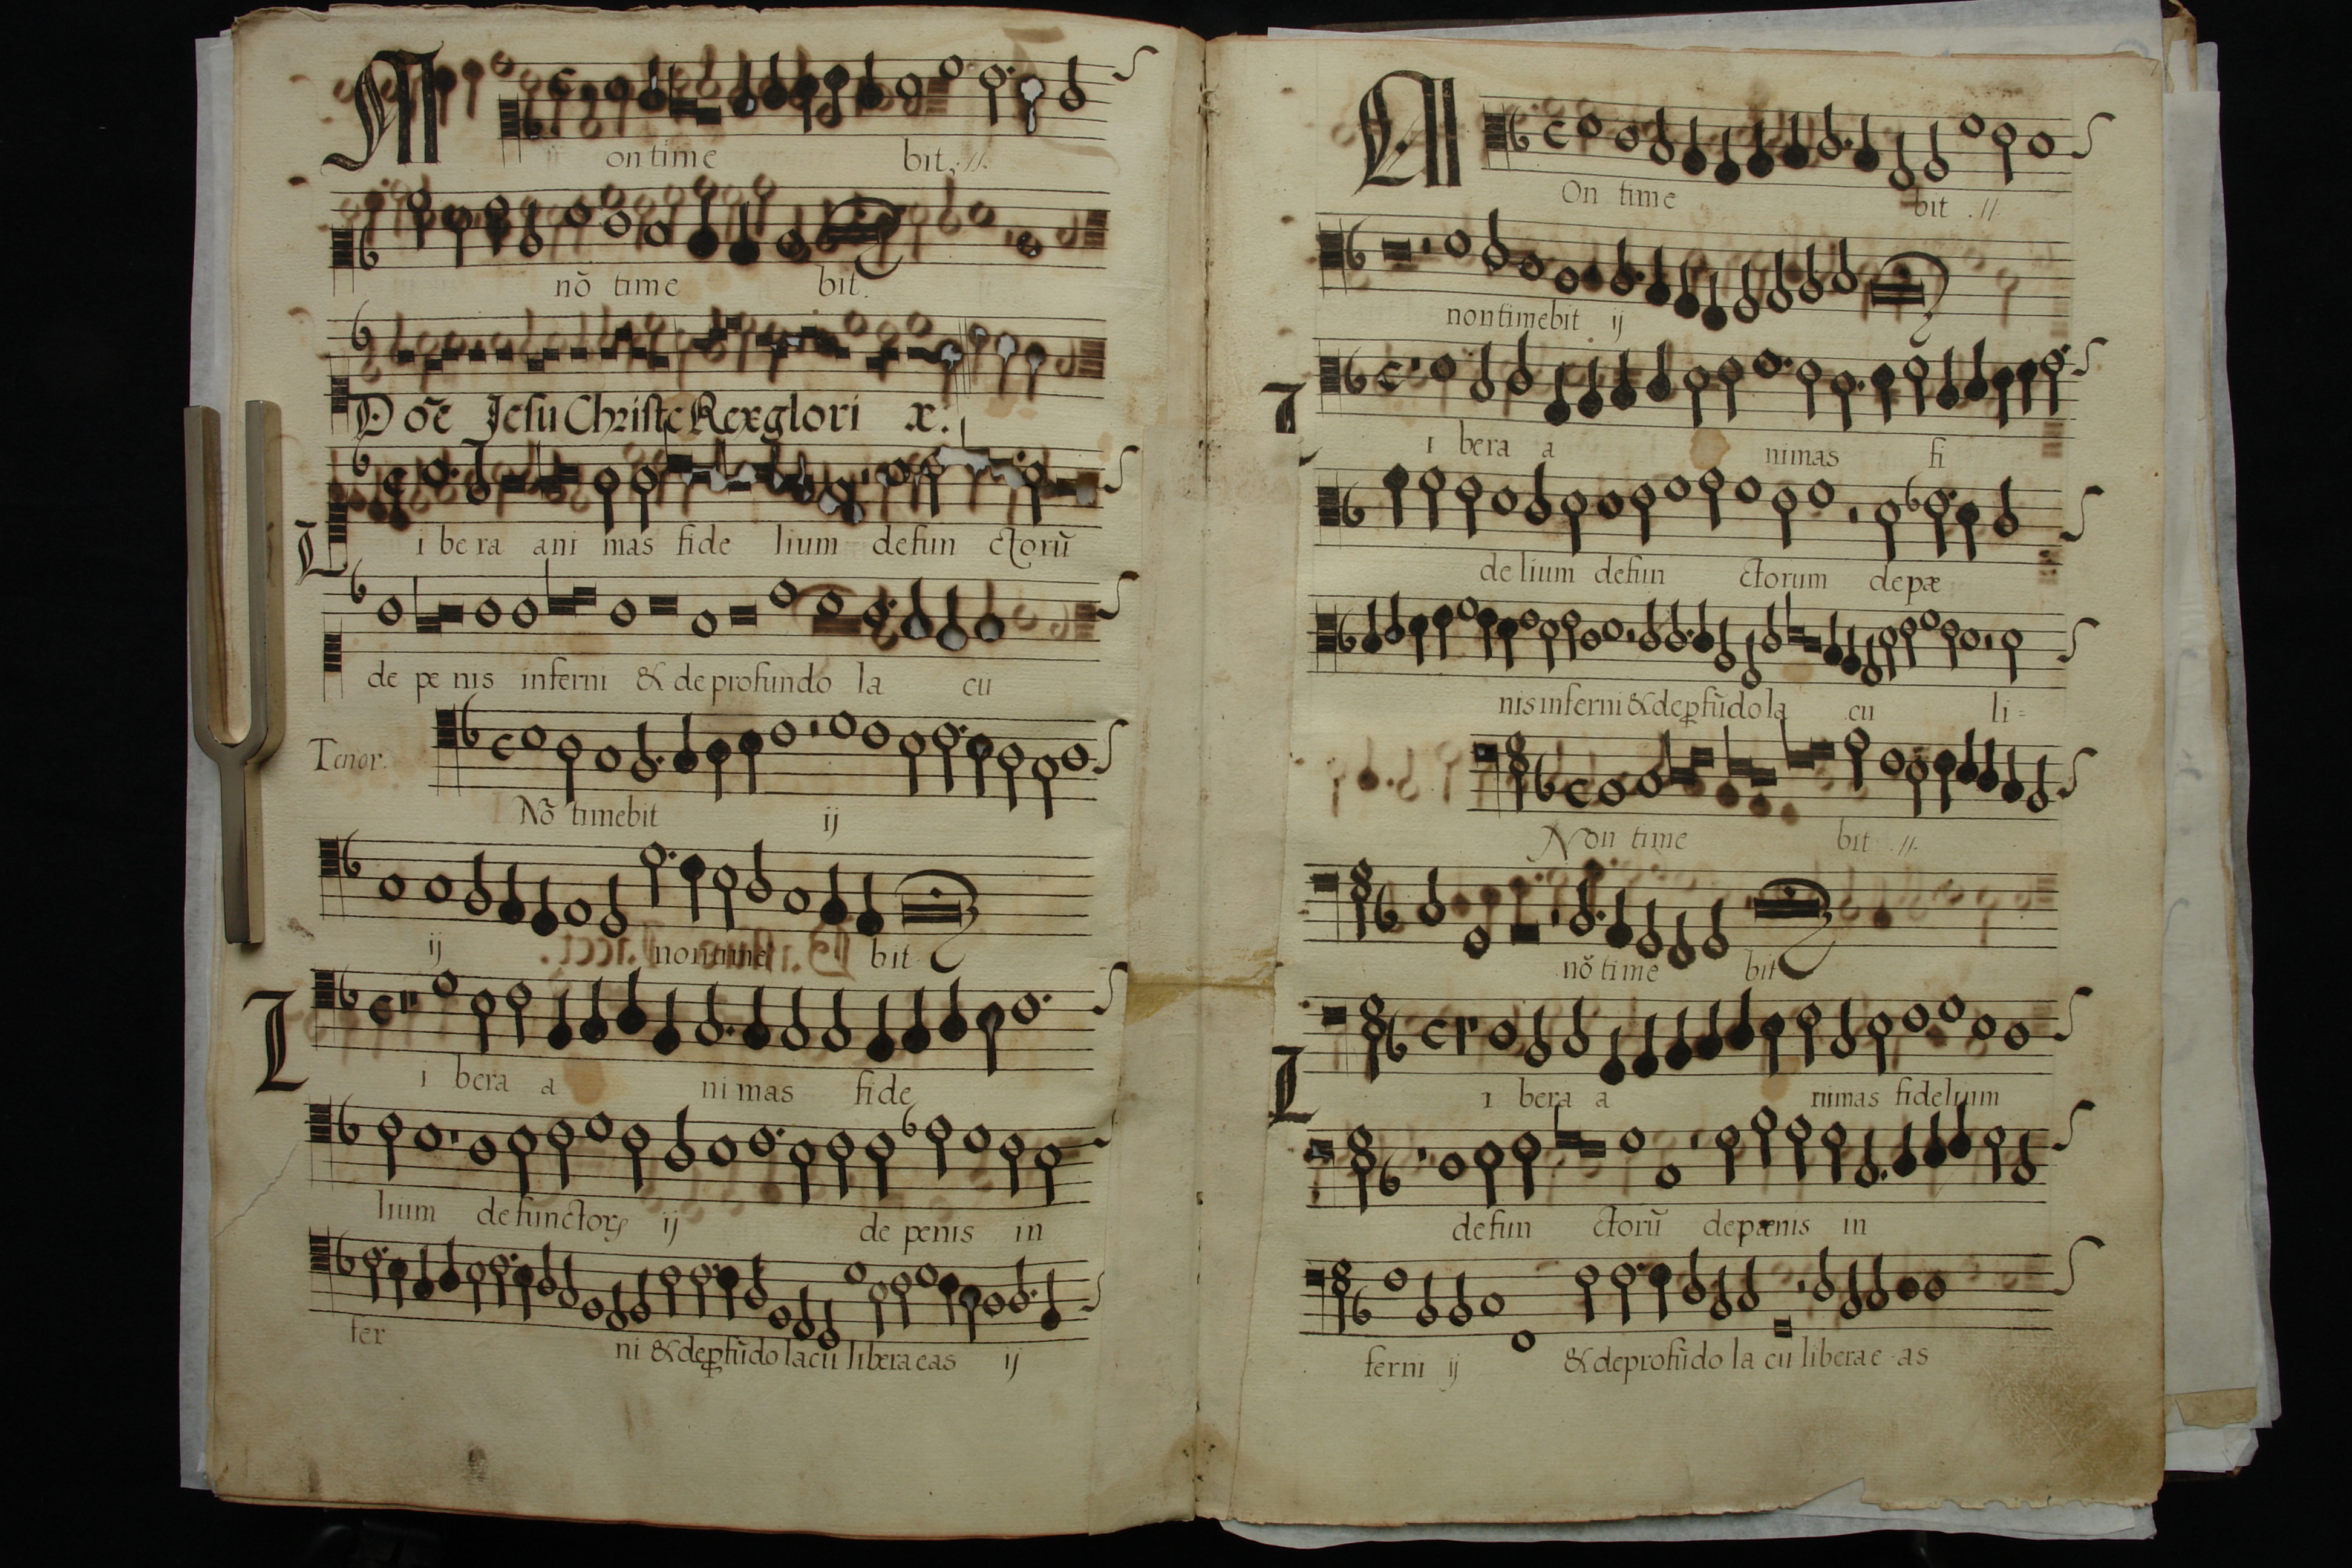 Non time bit .//.
nõ time bit.
Dõe Jesu Christe Rex glori æ.
Libera ani mas fide lium defun ctorũ
de pe nis inferni & de profundo la cu
Tenor.
Nõ timebit ij
ij non time bit
Libera a ni mas fide
lium defunctorꝝ ij de penis in
fer ni & deꝓfũdo lacu libera eas ij
Non time bit .//.
non timebit ij
Libera a nimas fi
delium defun ctorum de pæ
nis inferni & deꝓfũdo la cu li=
Non time bit .//.
nõ time bit
Libera a nimas fidelium
defun ctorũ de pænis in
ferni ij & de profũdo la cu liberae as